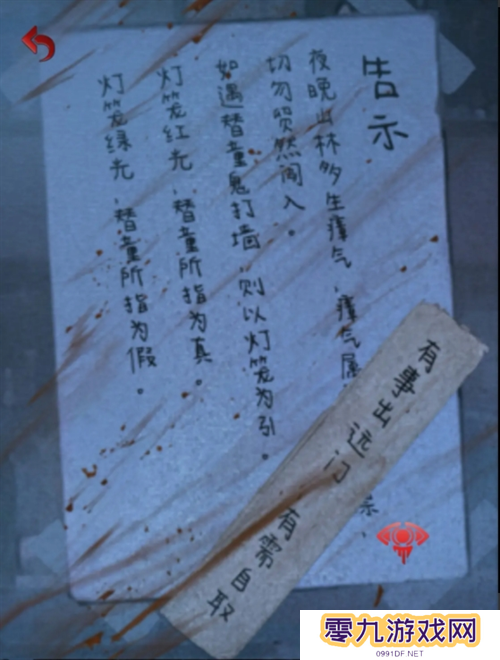 告示
夜晚山林多生瘴气，瘴气属
切勿贸然闯入。
如遇替童鬼打墙，则以灯笼为引。
灯笼红光，替童所指为真。
灯笼绿光，替童所指为假。
有事出远门
有需自取
零九游戏网
0991DF.NET